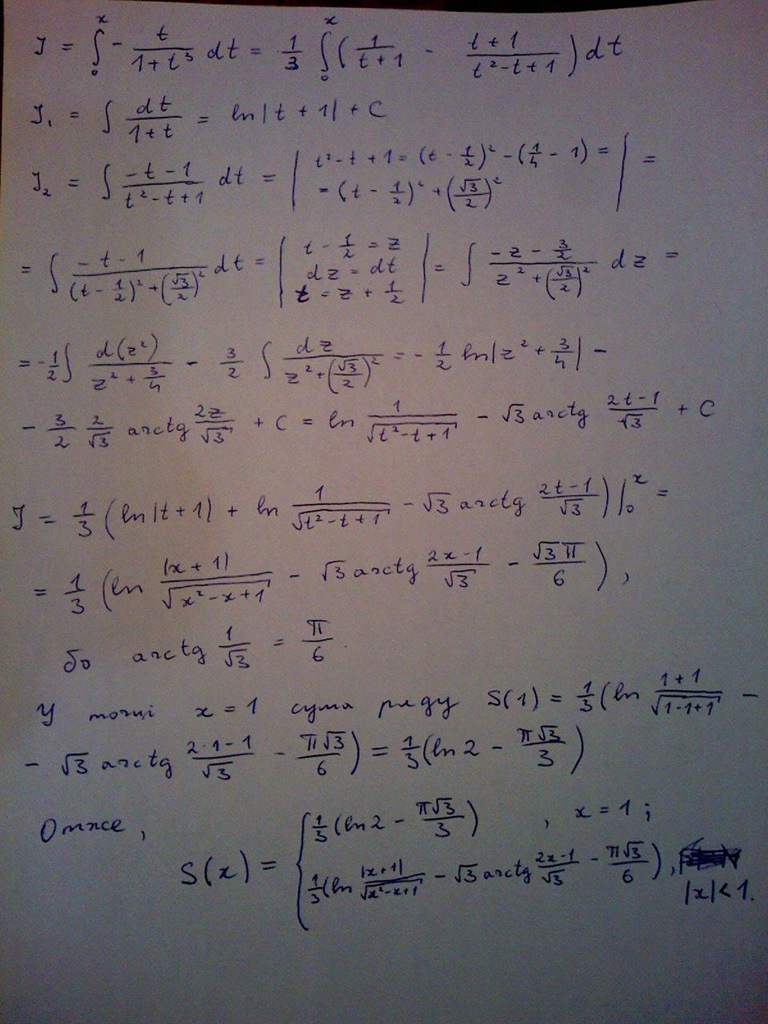 J = ∫₀ˣ - t/(1+t³) dt = 1/3 ∫₀ˣ (1/(t+1) - (t+1)/(t²-t+1)) dt
J₁ = ∫ dt/(1+t) = ln|t+1| + C
J₂ = ∫ (-t-1)/(t²-t+1) dt = | t²-t+1 = (t - 1/2)² - (1/4 - 1) = = (t - 1/2)² + (√3/2)² | =
= ∫ (-t-1)/((t - 1/2)² + (√3/2)²) dt = | t - 1/2 = z dz = dt t = z + 1/2 | = ∫ (-z - 3/2)/(z² + (√3/2)²) dz =
= -1/2 ∫ d(z²)/(z² + 3/4) - 3/2 ∫ dz/(z² + (√3/2)²) = - 1/2 ln|z² + 3/4| -
- 3/2 2/√3 arctg 2z/√3 + C = ln 1/√(t²-t+1) - √3 arctg (2t-1)/√3 + C
J = 1/3 (ln|t+1) + ln 1/√(t²-t+1) - √3 arctg (2t-1)/√3) |₀ˣ =
= 1/3 (ln |x+1)/√(x²-x+1) - √3 arctg (2x-1)/√3 - √3π/6),
бо arctg 1/√3 = π/6.
У точці x = 1 сума ряду S(1) = 1/3 (ln (1+1)/√(1-1+1) -
- √3 arctg (2·1-1)/√3 - π√3/6) = 1/3 (ln 2 - π√3/3)
Отже,
S(x) = { 1/3 (ln 2 - π√3/3) , x = 1;
1/3 (ln |x+1|/√(x²-x+1) - √3 arctg (2x-1)/√3 - π√3/6), |x|<1.